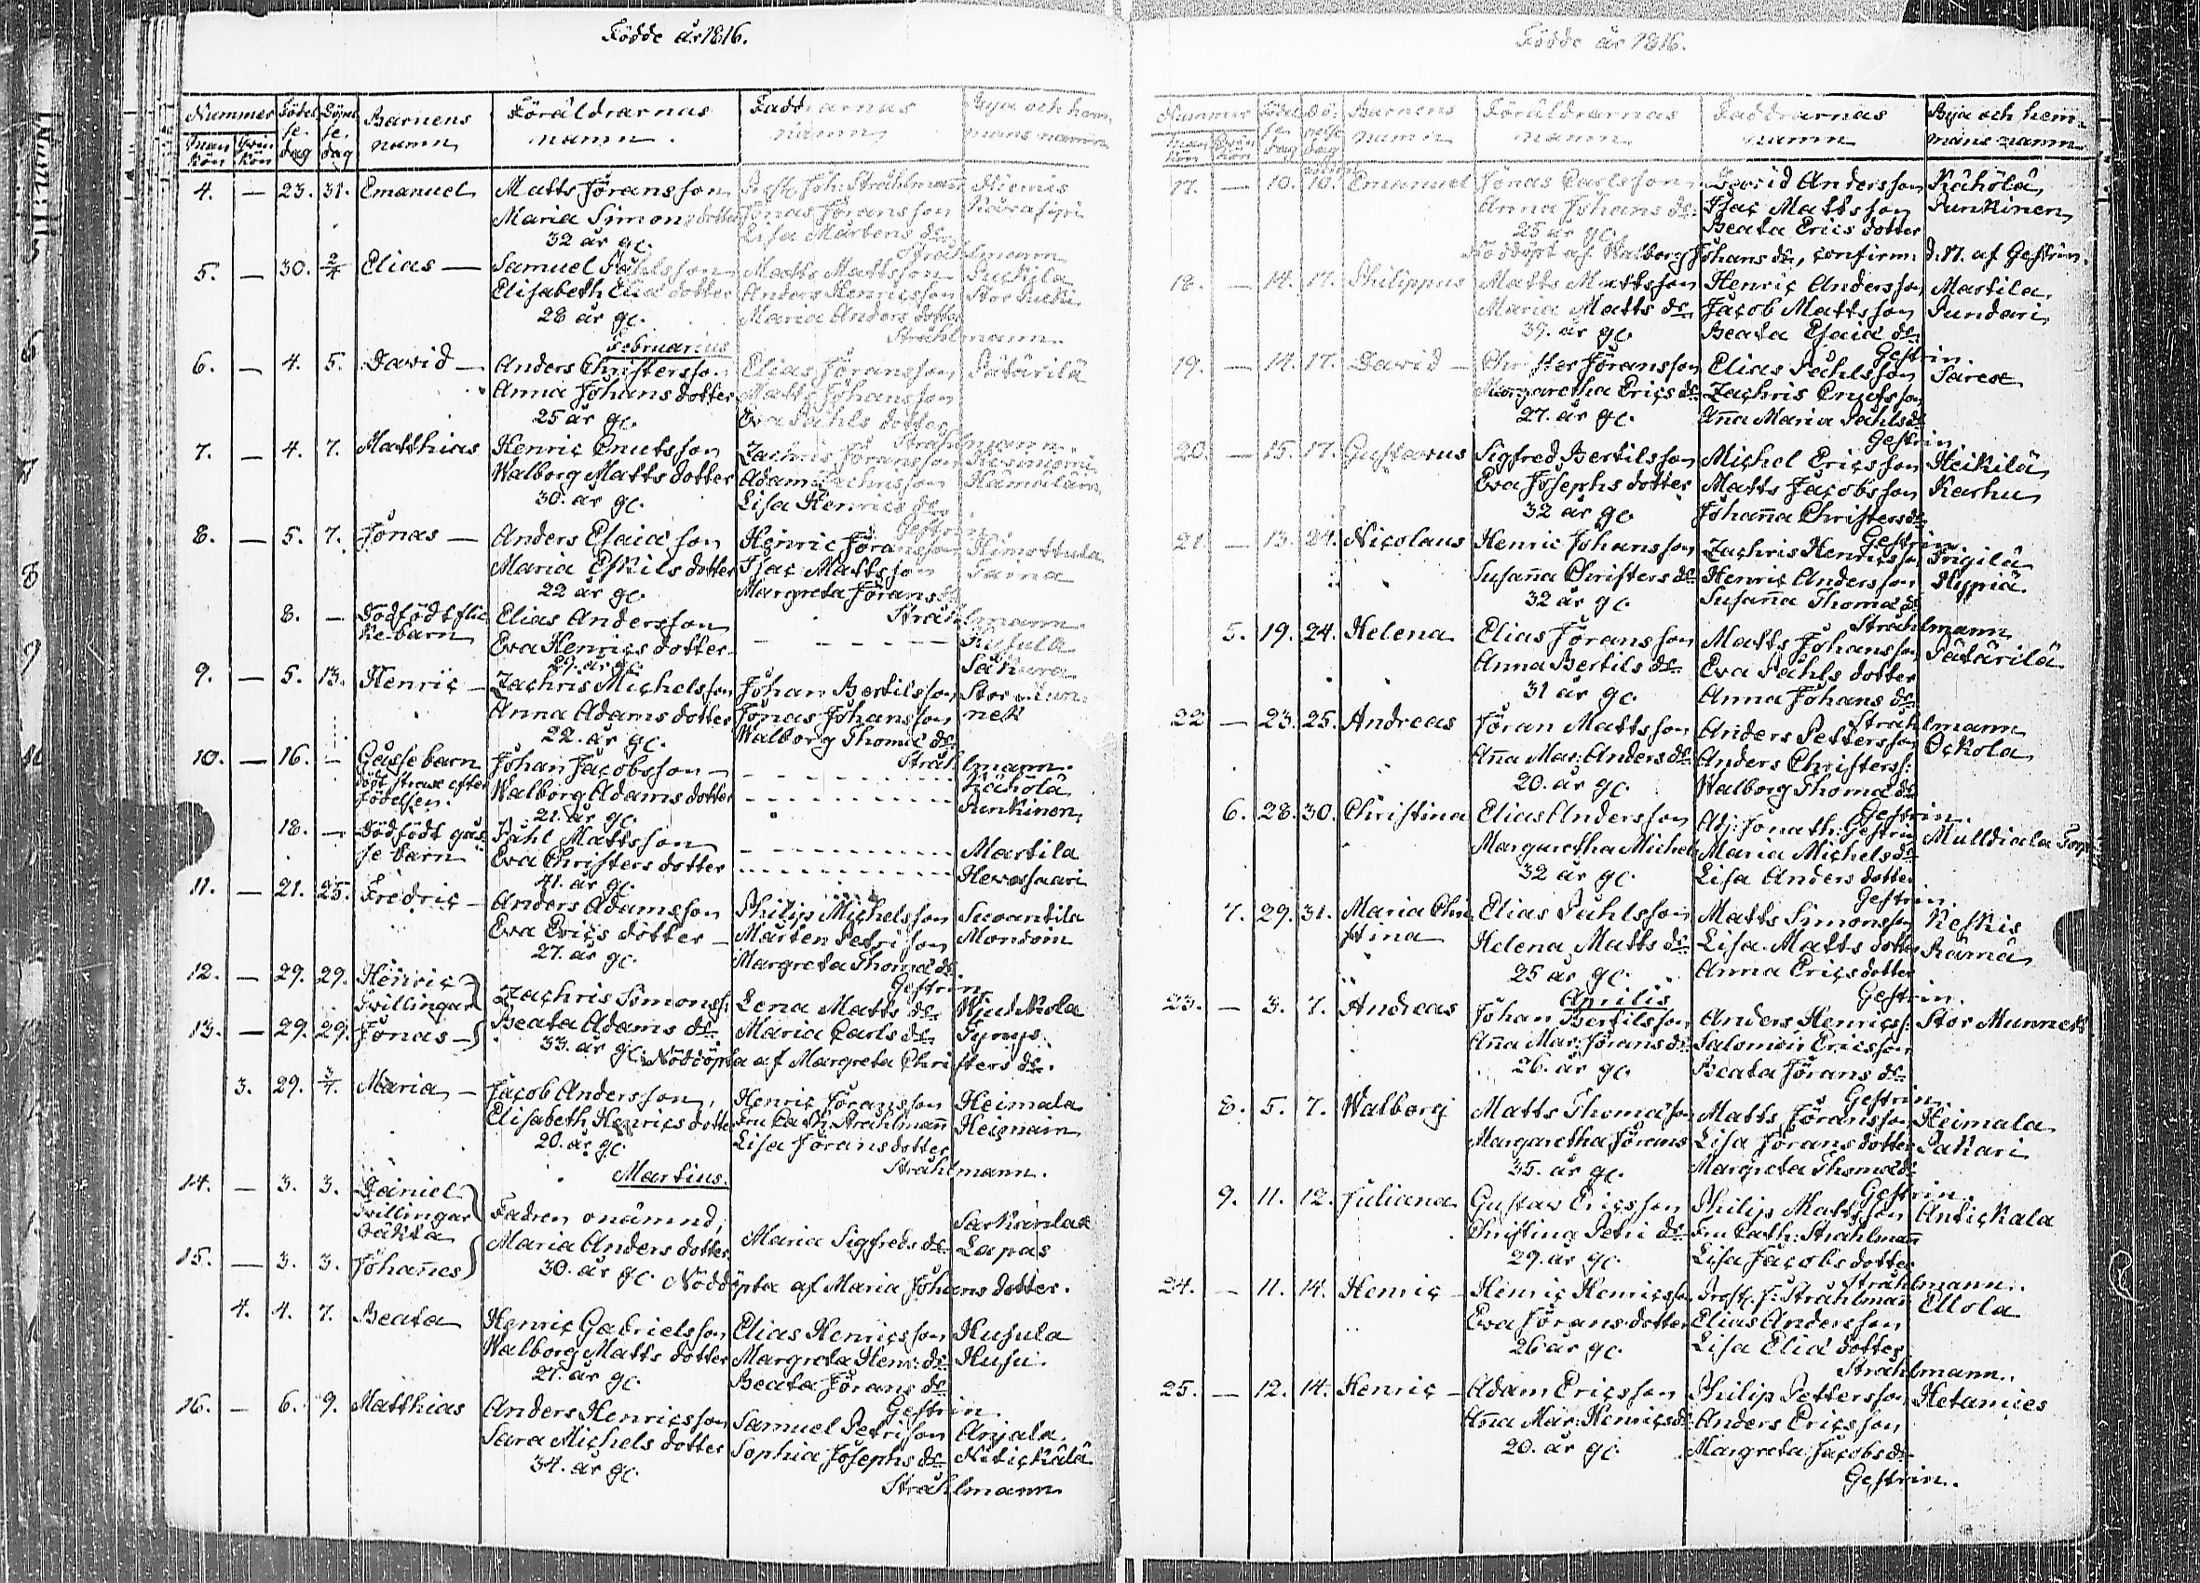 Födde år 1816.
Nummer Födel se. dag Döpel se. dag Barnens namn Föräldrarnas namn. Faddrarnas namn Bya och hemmans namn
Man kön Qvin kön
4. — 23. 31. Emanuel Matts Jöransson Joh: Stråhlmann
Maria Simonsdotter Jonas Jöransson
32 år gl. Lisa Mårtens dr
Stråhlmann
5. — 30. 2/4 Elias — Samuel Matts Mattsson
Elisabeth Eliæ dotter Anders Henricsson
28 år gl. Maria Anders dotter
Stråhlmann.
Februarius
6. — 4. 5. David — Anders Christersson Elias Jöransson Pätärilä
Anna Johans dotter Matts Johansson
25 år gl. Eva Påhls dotter
Stråhlmann.
7. — 4. 7. Matthias Henric Cnutsson Zachris Jöransson
Walborg Matts dotter Adam
30. år gl. Lisa Henrics dr
Gestrin
8. — 5. 7. Jonas — Anders Esaiæ son Henric Jöransson
Maria Eskils dotter Isac Mattsson
22 år gl. Margreta Jörans dr
Stråhlmann
8. — Dödfödt flic Elias Andersson
ke-barn Eva Henrics dotter
29. år gl.
9. — 5. 13. Henric — Zachris Michelsson Johan Bertilsson Stor
Anna Adams dotter Jonas Johansson
22. år gl. Walborg Thomæ dr
Stråhlmann.
10. — 16. — Gåsse barn Johan Jacobsson — Kähölä
dödt strax efter Walborg Adams dotter Punkinen
födelsen. 21. år gl.
18. — Dödfödt gås Påhl Mattsson Martila
se barn Eva Christers dotter
41. år gl.
11. — 21. 25. Fredric — Anders Adamsson Philip Michelsson
Eva Erics dotter — Mårten Petri son
27. år gl. Margreta Thomæ dr.
Gestrin
12. — 29. 29. Henric Zachris Simonss: Lena Matts dr
Tvillingar Beata Adams dr Maria Carls dr
13. — 29. 29. Jonas — 33. år gl. Nöddöpta af Margreta Christers dr.
3. 29. 3/4 Maria — Jacob Andersson, Henric Jöransson Heimala
Elisabeth Henrics dotter Fru Cath. Stråhlmann
20. år gl. Lisa Jörans dotter
Stråhlmann.
Martius.
14. — 3. 3. Daniel
Tvillingar Fadren onämnd, Maria Sigfreds dr
oäkta Maria Anders dotter Lapas
15. — 3. 3. Johannes 30. år gl. Nöddöpta af Maria Johans dotter.
4. 4. 7. Beata Henric Gabrielsson Elias Henricsson Husula
Walborg Matts dotter Margreta Henr: dr Husu.
27. år gl. Beata Jörans dr
Gestrin
16. — 6. 9. Matthias Anders Henricsson Samuel Petrison Anjala.
Sara Michels dotter Sophia Josephs dr
34. år gl.
Stråhlmann
Födde år 1816.
Nummer Födel se dag Barnens namn Föräldrarnas namn Faddrarnas namn Bya och hemmans namn
17. — 10. 10. Emanuel Jonas Carlsson David Andersson Kähölä
Anna Johans dr. Isac Mattsson Punkinen
25 år gl. Beata Erics dotter
Nöddöpt af Walborg Johans dr, confirm: d. 17. af Gestrin.
18. — 14. 17. Philippus Matts Mattsson Henric Andersson Martila
Maria Matts dr Jacob Mattsson Pundari
39. år gl. Beata Esaiæ dr
Gestrin.
19. — 14. 17. David — Christer Jöransson Elias Påhlsson
Margaretha Erics dr Zachris Cnutsson
27. år gl. Anna Maria Påhls dr
Gestrin
20. — 15. 17. Gustavus Sigfred Bertilsson Michel Ericsson Heikilä
Eva Josephs dotter Matts Jacobsson Karhu
32 år gl. Johanna Christers dr
Gestrin
21. — 13. 24. Nicolaus Henric Johansson Zachris Henricsson
Susanna Christers dr Henric Andersson
32 år gl. Susanna Thomæ dr
Stråhlmann
5. 19. 24. Helena Elias Jöransson Matts Johansson Pätärilä
Anna Bertils dr Eva Påhls dotter
31 år gl. Anna Johans dr
Stråhlmann
22 — 23. 25. Andreas Jöran Mattsson Anders Pettersson Ockola
Anna Mar: Anders dr Anders Christerss:
20. år gl. Walborg Thomæ dr
Gestrin.
6. 28. 30. Christina Elias Andersson Adj: Jonath: Gestrin Mulldiala Torp
Margaretha Michels Maria Michels dr
32 år gl. Lisa Anders dotter
Gestrin.
7. 29. 31. Maria Chri Elias Påhlsson Matts Simonsson Keskis
stina Helena Matts dr Lisa Matts dotter Rämä
25 år gl. Anna Erics dotter
Gestrin.
Aprilis
23. — 3. 7. Andreas Johan Bertilsson Anders Henricss: Stor Munnek
Anna Mar: Jörans dr Salomon Ericsson
26. år gl. Beata Jörans dr
Gestrin.
8. 5. 7. Walborg Matts Thomæson Matts Jöransson Heimala
Margaretha Jörans Lisa Jörans dotter Pakari
35. år gl. Margreta Thomæ dr
Gestrin.
9. 11. 12. Juliana Gustav Ericsson Philip Mattsson Antickala
Christina Petri dr Fru Cath: Stråhlmann
29. år gl. Lisa Jacobs dotter
Stråhlmann.
24. — 11. 14. Henric — Henric Henricsson Prost. J: Stråhlmann Ellola
Eva Jörans dotter Elias Andersson
26 år gl. Lisa Eliæ dotter
Stråhlmann.
25. — 12. 14. Henric — Adam Ericsson Philip Pettersson Hetanies
Anna Mar: Henrics dr Anders Ericsson
20. år gl. Margreta Jacobs dr
Gestrin.